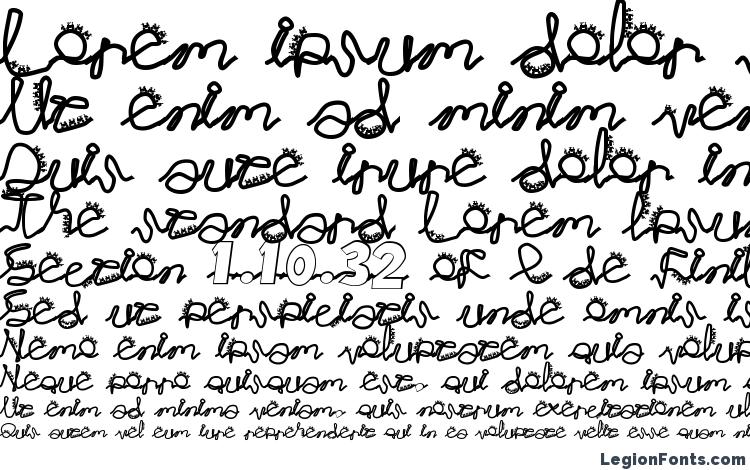 Lorem ipsum dolor
Ut enim ad minim ven
Quis aute irure dolor in
The standard Lorem Ipsu
Section 1.10.32 of l de Fini
Sed ut perspiciatis unde omnis i
Nemo enim ipsam voluptatem quia volup
Neque porro quisquam est, qui dolorem ipsum
Ut enim ad minima veniam, quis nostrum exercitationem
Quis autem vel eum iure reprehenderit qui in ea voluptate velit esse quam
LegionFonts.com